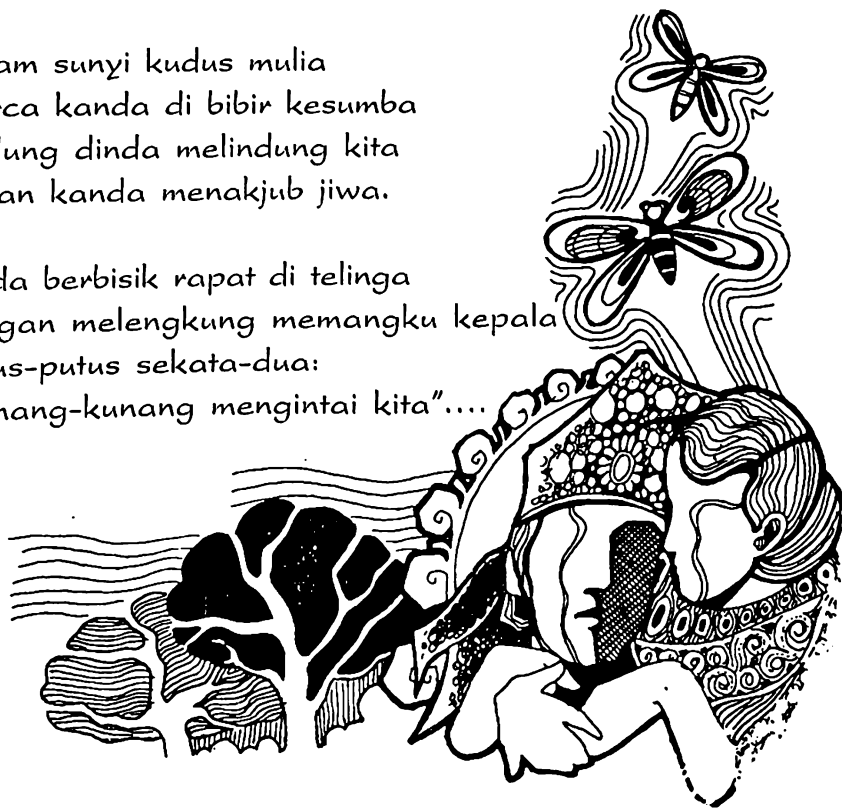 am sunyi kudus mulia
ca kanda di bibir kesumba
ung dinda melindung kita
an kanda menakjub jiwa.
da berbisik rapat di telinga
gan melengkung memangku kepala
us-putus sekata-dua:
nang-kunang mengintai kita"....